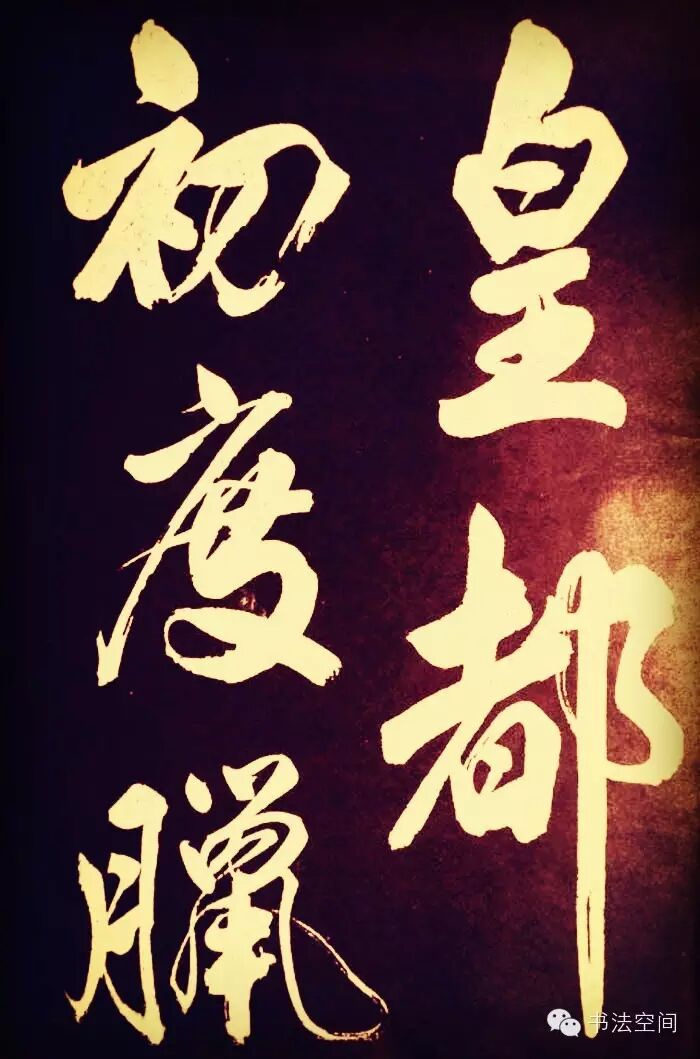 皇都
初度臘
书法空间